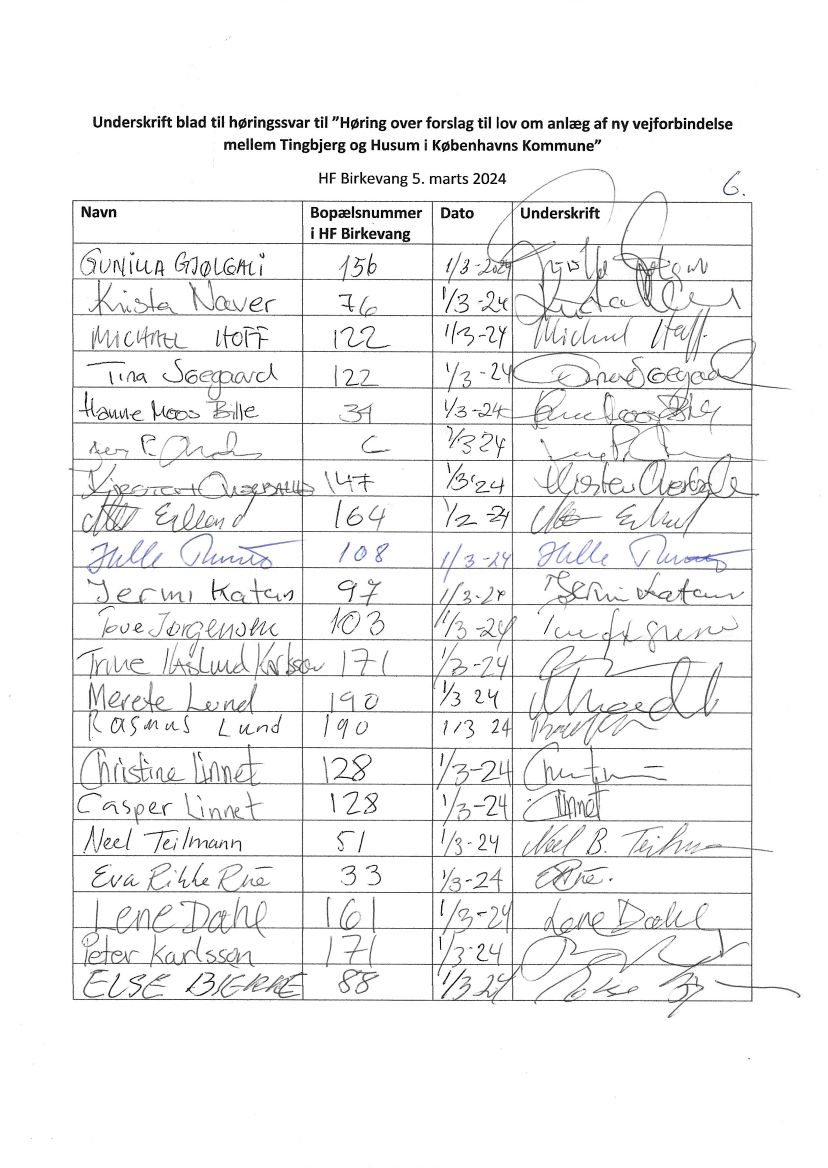 Underskrift blad til høringssvar til ”Høring over forslag til lov om anlæg af ny vejforbindelse
mellem Tingbjerg og Husum i Københavns Kommune”
HF Birkevang 5. marts 2024
6.
Navn Bopælsnummer i HF Birkevang Dato Underskrift
GUNILLA 156 1/3-2024
Krista Naver 76 1/3-24
MICHAEL HOFF 122 1/3-24 Michael Hoff
Tina Soegaard 122 1/3-24 Tina Soegaard
Hanne Moos Bille 34 1/3-24 Hanne Moos Bille
1/3 24
147 1/3 24
164 1/2 -24
Helle 108 1/3-24 Helle
Jermi Katan 97 1/3-24 Jermi Katan
Tove Jørgensen 103 1/3-24
Trine Haslund Karlsson 171 1/3-24
Merete Lund 190 1/3 24
Rasmus Lund 190 1/3 24
Christine Linnet 128 1/3-24
Casper Linnet 128 1/3-24 Linnet
Neel Teilmann 51 1/3-24 Neel B. Teilmann
Eva Rikke 33 1/3-24
Lene Dahl 161 1/3-24 Lene Dahl
Peter Karlsson 171 1/3-24
ELSE BJERRE 88 1/3 24 Else